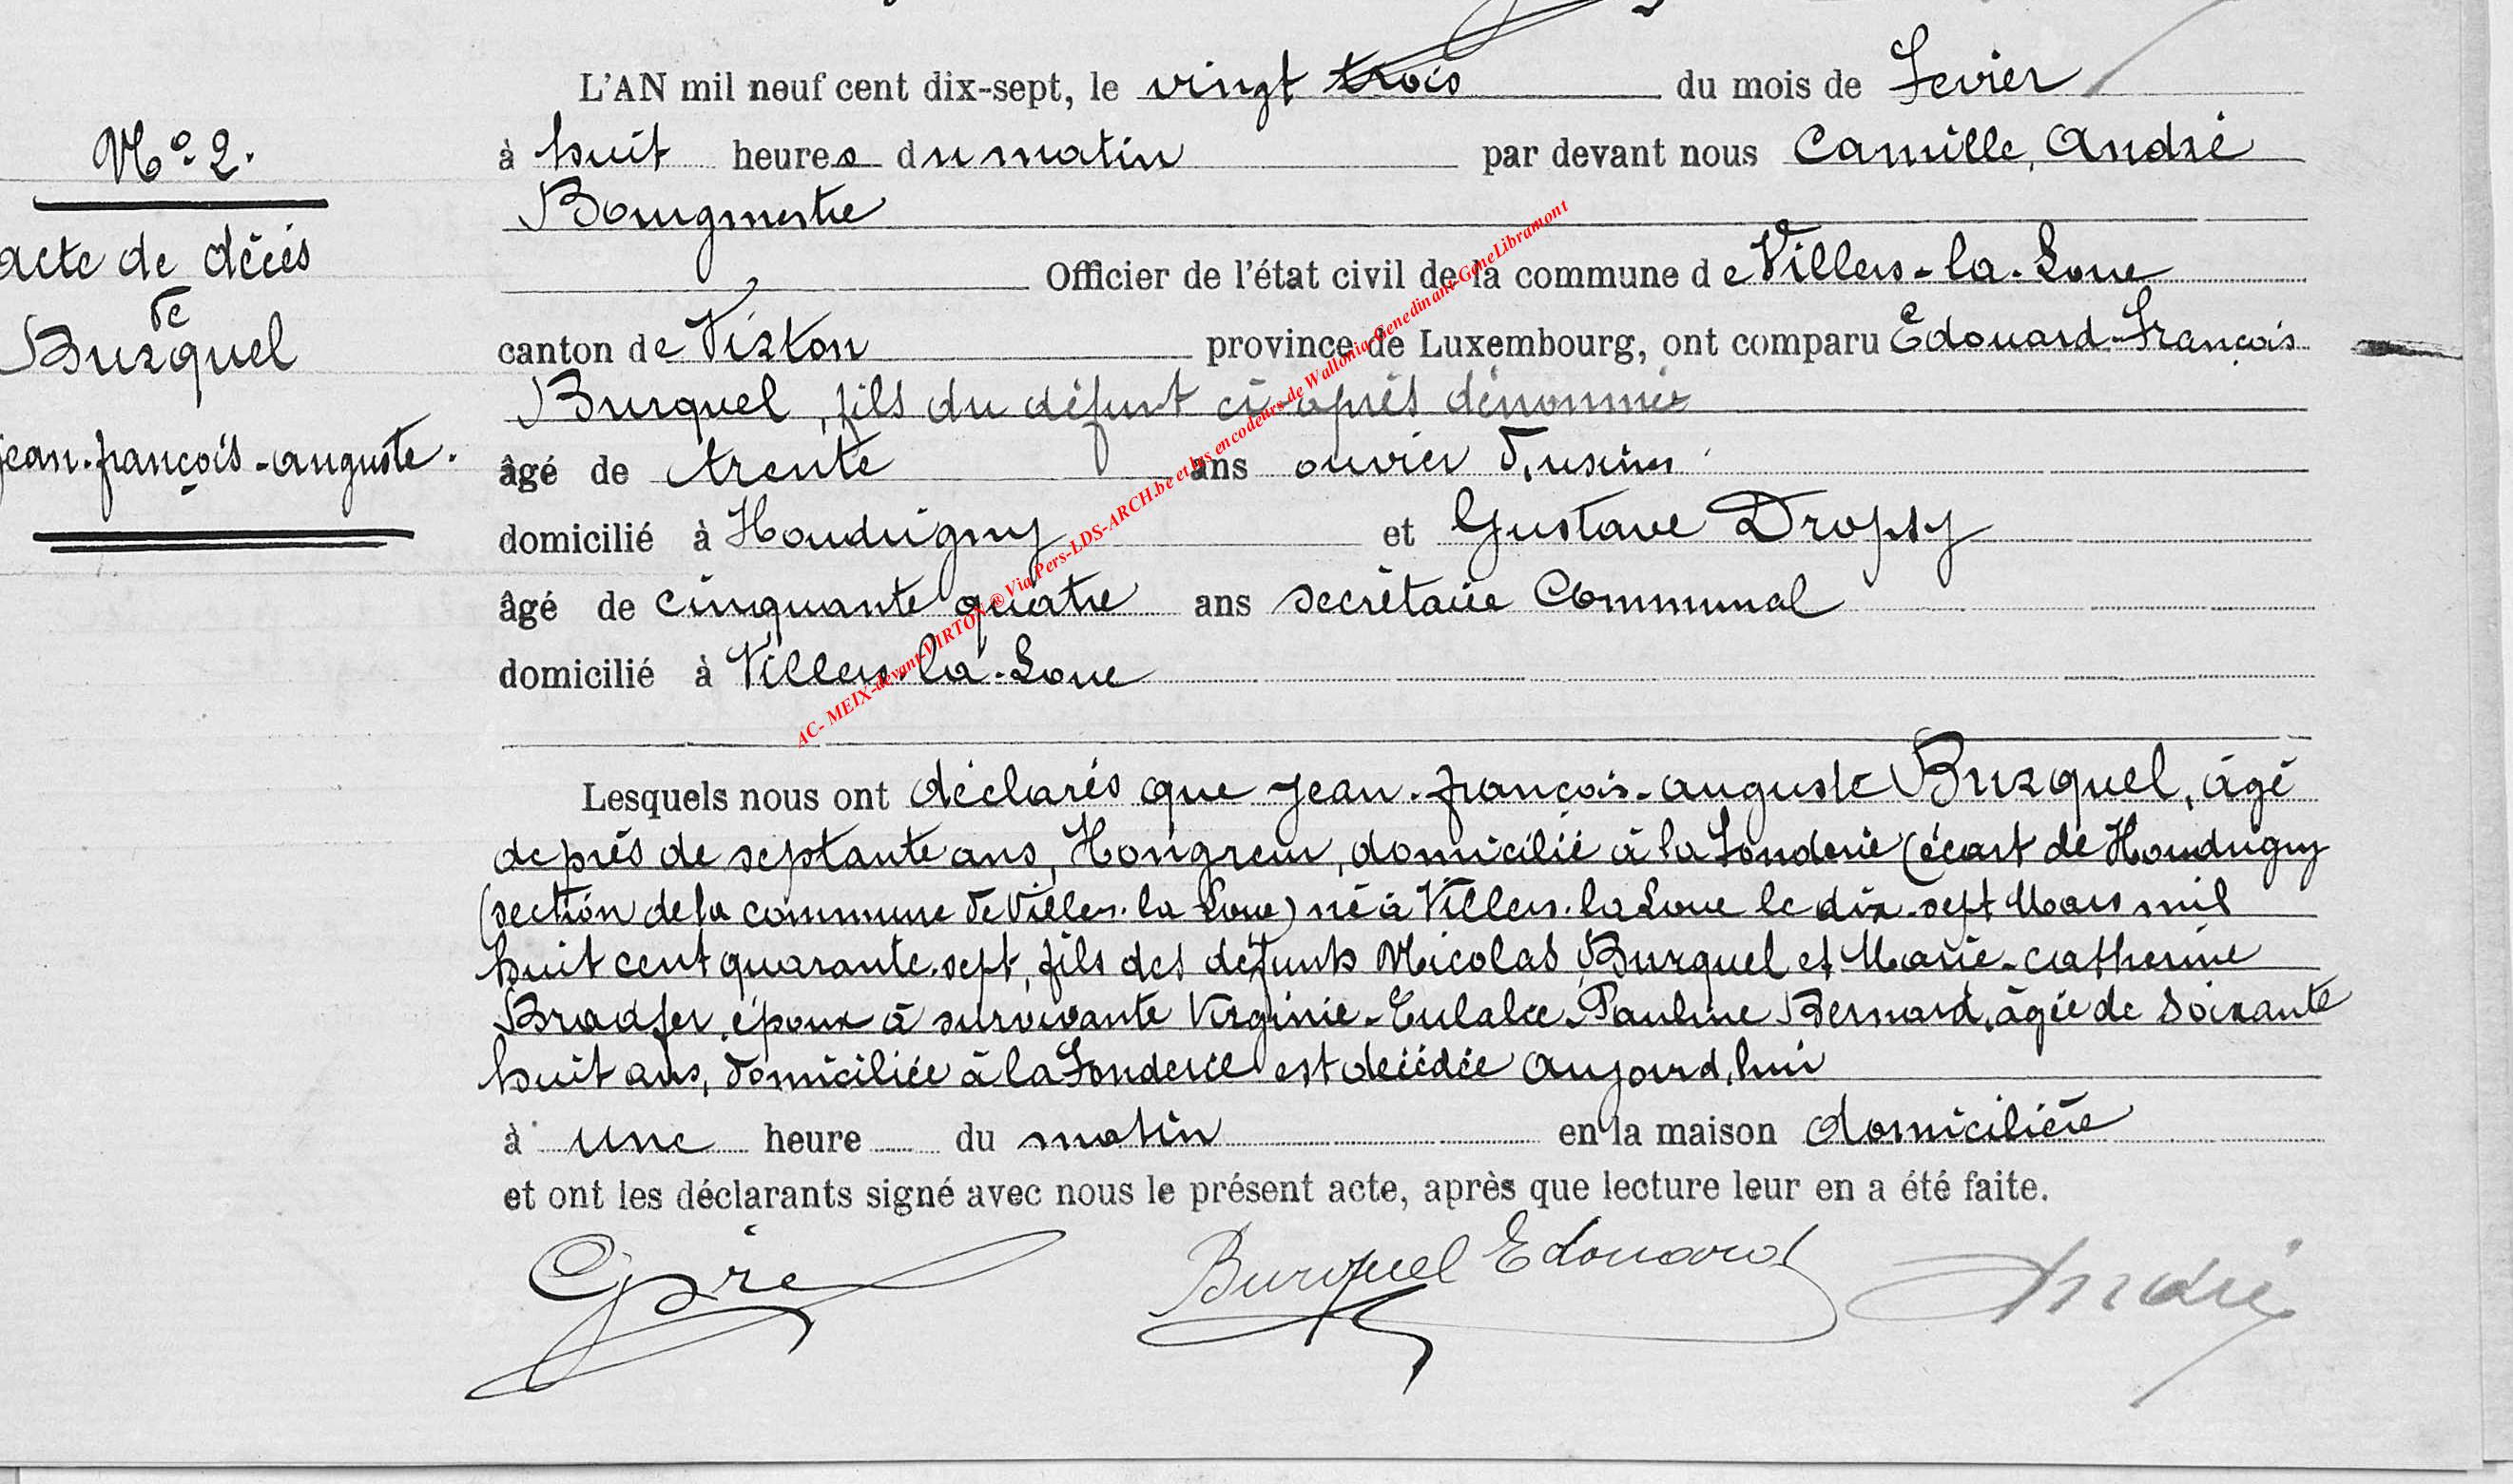 L'AN mil neuf cent dix-sept, le vingt trois du mois de Fevier
N° 2.
à huit heures du matin par devant nous Camille, André
Bougmestre
acte de décès
Officier de l'état civil de la commune de Villers-la-Loue
de
Burquel
canton de Virton province de Luxembourg, ont comparu Edouard-François
Burquel, fils du défunt ci-après dénommé
jean-françois-auguste.
âgé de trente ans ouvrier d'usines
domicilié à Houdrigny et Gustave Dropsy
âgé de cinquante quatre ans secrétaire Communal
domicilié à Villers-la-Loue
AC- MEIX-devant-VIRTON ® Via Pers-LDS-ARCH.be et les encodeurs de Wallonia-Genedinant-GeneLibramont
Lesquels nous ont déclarés que jean-françois-auguste Burquel, âgé
de près de septante ans, Hongreur, domicilié à la Fonderie (écart de Houdrigny
(section de la commune de Villers-la-Loue) né à Villers-la-Loue le dix-sept Mars mil
huit cent quarante-sept, fils des défunts Nicolas Burquel et Marie-catherine
Bradfer, époux à survivante Virginie-Eulalie-Pauline Bernard, âgée de soixante
huit ans, domiciliée à la Fonderie est décédée aujourd'hui
à une heure du matin en la maison domicilière
et ont les déclarants signé avec nous le présent acte, après que lecture leur en a été faite.
Burquel Edouard André